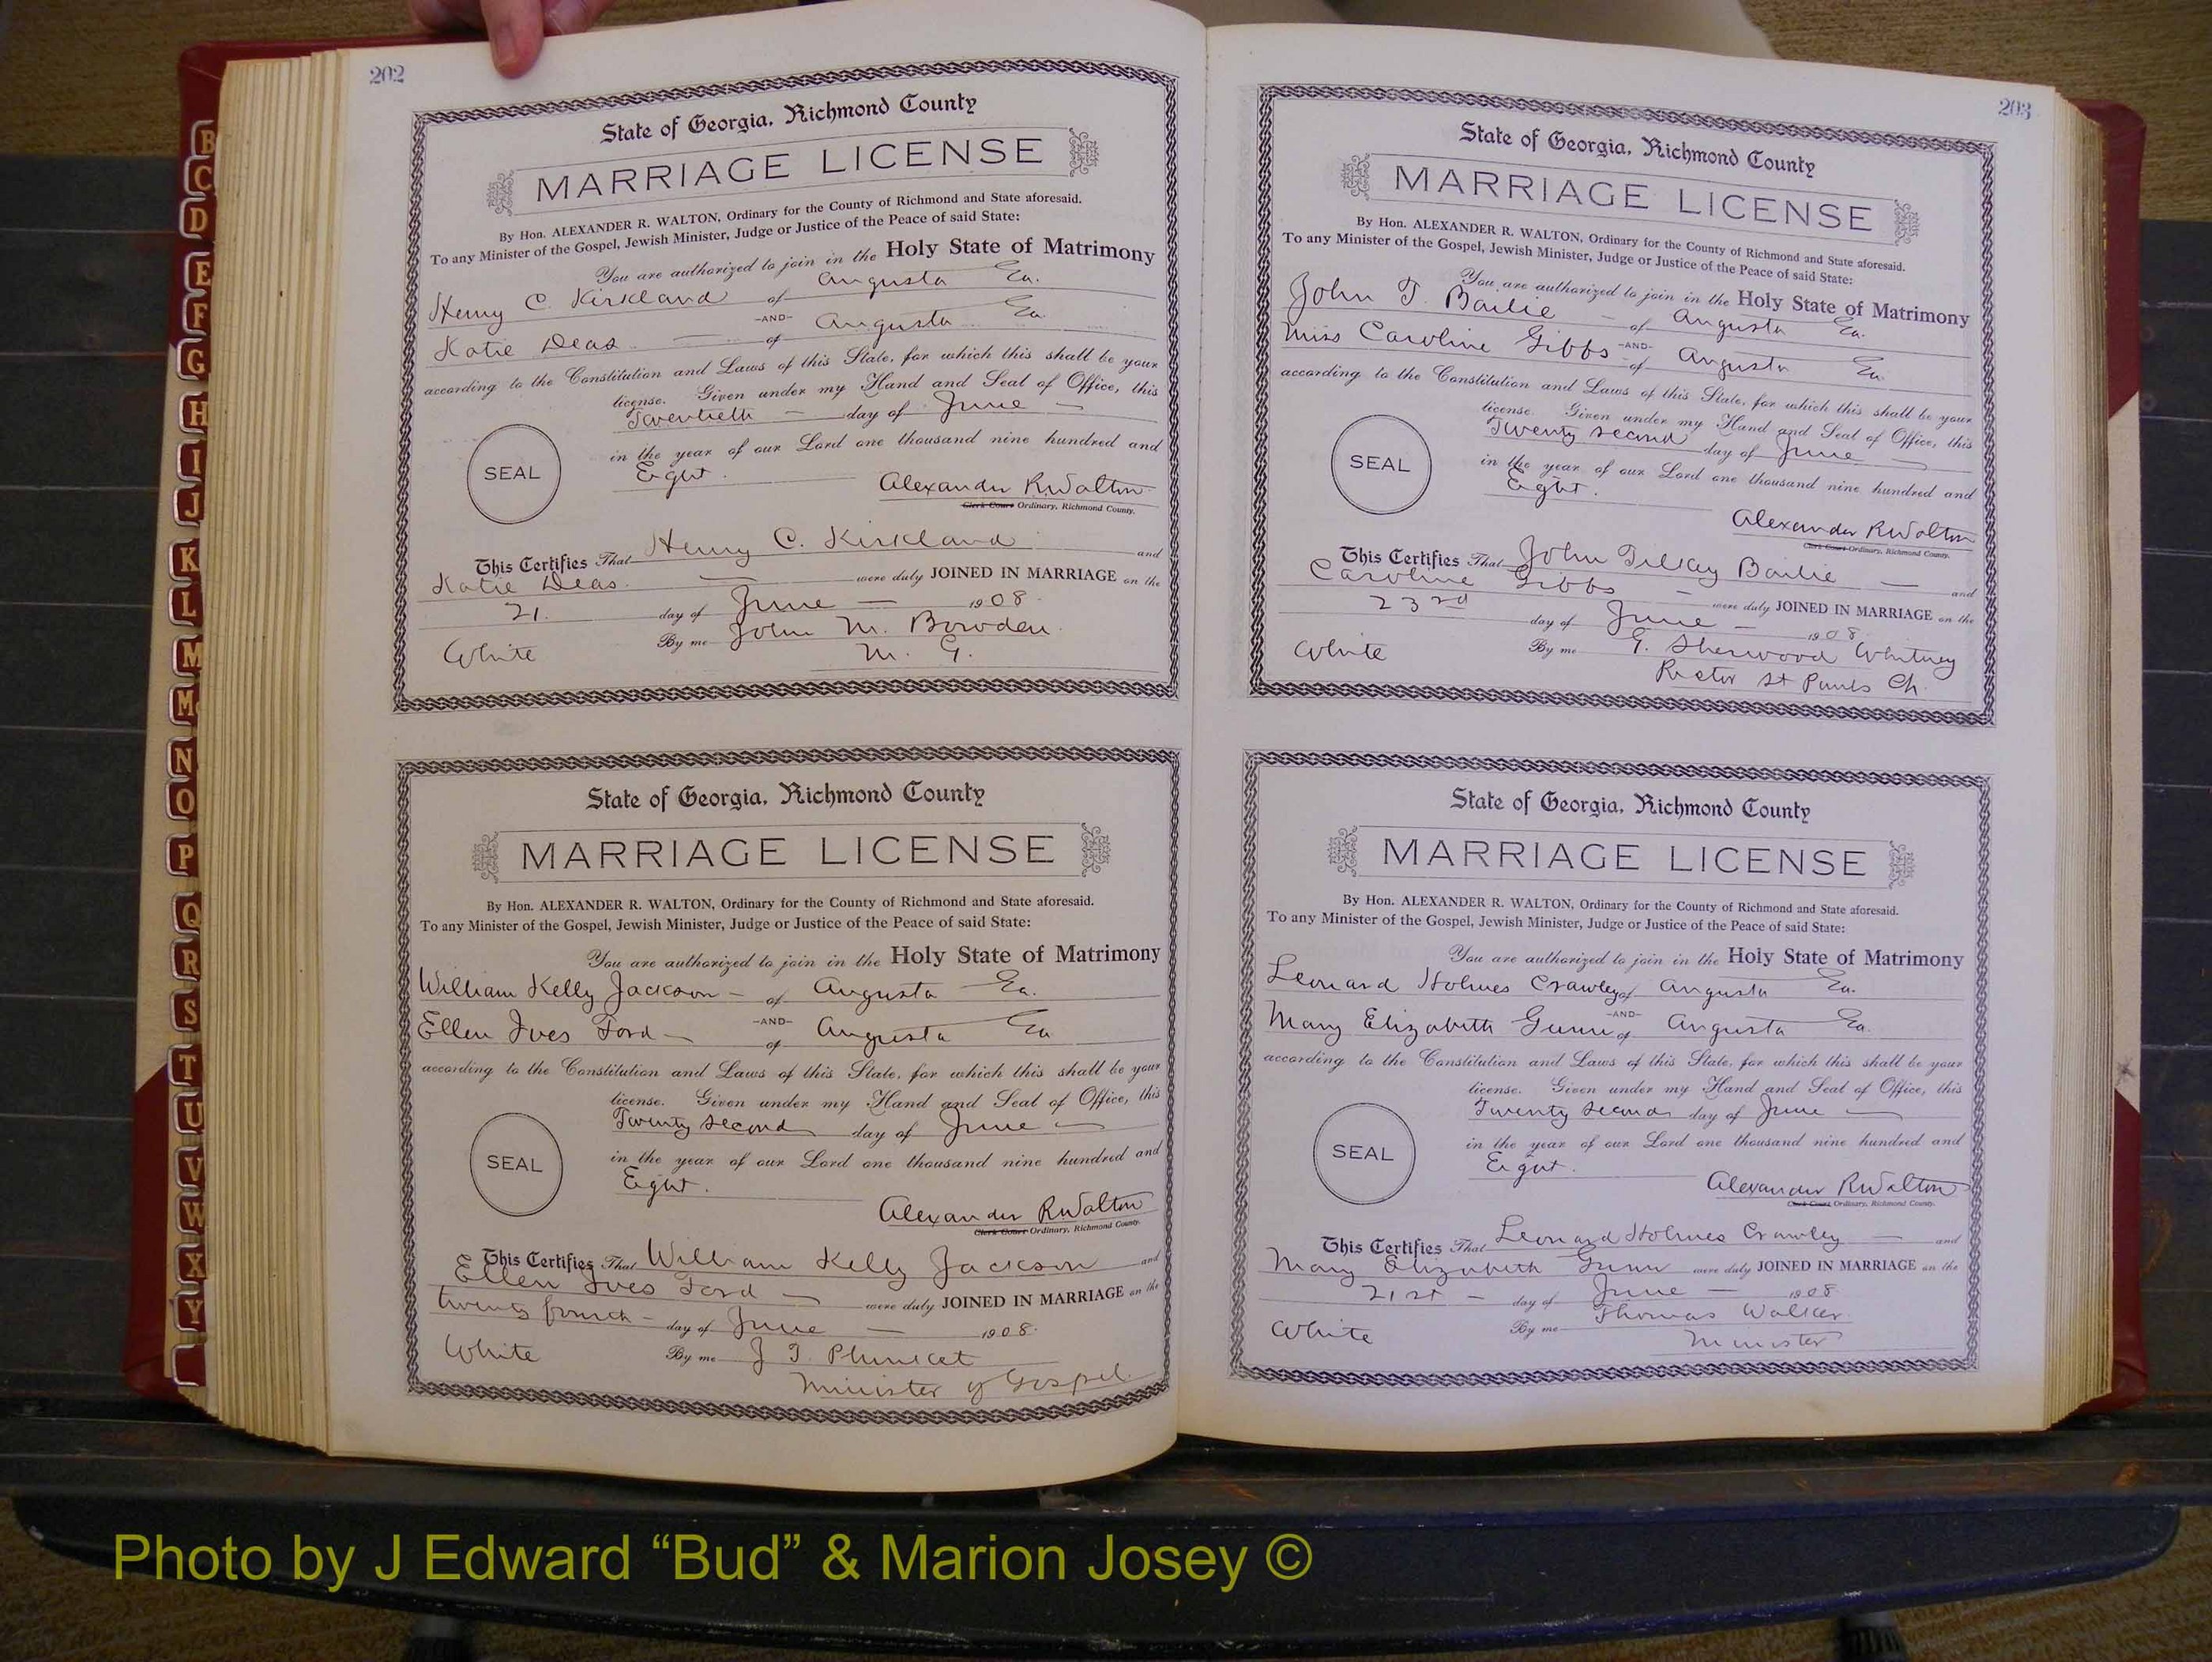 202
State of Georgia, Richmond County
MARRIAGE LICENSE
By Hon. ALEXANDER R. WALTON, Ordinary for the County of Richmond and State aforesaid.
To any Minister of the Gospel, Jewish Minister, Judge or Justice of the Peace of said State:
You are authorized to join in the Holy State of Matrimony
Henry C. Kirkland of Augusta Ga.
-AND-
Katie Deas of Augusta Ga
according to the Constitution and Laws of this State, for which this shall be your
license. Given under my Hand and Seal of Office, this
Twentieth day of June
in the year of our Lord one thousand nine hundred and
SEAL
Eight.
Alexander R Walton
Clerk Court Ordinary, Richmond County.
This Certifies That Henry C. Kirkland and
Katie Deas. were duly JOINED IN MARRIAGE on the
21. day of June 1908
White By me John M. Bowden
M. G.
State of Georgia, Richmond County
MARRIAGE LICENSE
By Hon. ALEXANDER R. WALTON, Ordinary for the County of Richmond and State aforesaid.
To any Minister of the Gospel, Jewish Minister, Judge or Justice of the Peace of said State:
You are authorized to join in the Holy State of Matrimony
William Kelly Jackson of Augusta Ga.
-AND-
Ellen Ives Ford of Augusta Ga
according to the Constitution and Laws of this State, for which this shall be your
license. Given under my Hand and Seal of Office, this
Twenty second day of June
in the year of our Lord one thousand nine hundred and
SEAL
Eight.
Alexander R Walton
Clerk Court Ordinary, Richmond County.
This Certifies That William Kelly Jackson and
Ellen Ives Ford were duly JOINED IN MARRIAGE on the
twenty fourth day of June 1908.
White By me J T. Plunket
Minister of Gospel
203
State of Georgia, Richmond County
MARRIAGE LICENSE
By Hon. ALEXANDER R. WALTON, Ordinary for the County of Richmond and State aforesaid.
To any Minister of the Gospel, Jewish Minister, Judge or Justice of the Peace of said State:
You are authorized to join in the Holy State of Matrimony
John T. Bailie of Augusta Ga.
-AND-
Miss Caroline Gibbs of Augusta Ga
according to the Constitution and Laws of this State, for which this shall be your
license. Given under my Hand and Seal of Office, this
Twenty second day of June
in the year of our Lord one thousand nine hundred and
SEAL
Eight.
Alexander R Walton
Clerk Court Ordinary, Richmond County.
This Certifies That John Bailie and
Caroline Gibbs were duly JOINED IN MARRIAGE on the
23rd day of June 1908
White By me G. Sherwood Whitney
Rector St Pauls Ch.
State of Georgia, Richmond County
MARRIAGE LICENSE
By Hon. ALEXANDER R. WALTON, Ordinary for the County of Richmond and State aforesaid.
To any Minister of the Gospel, Jewish Minister, Judge or Justice of the Peace of said State:
You are authorized to join in the Holy State of Matrimony
Leonard Holmes Crawley of Augusta Ga.
-AND-
Mary Elizabeth Gunn of Augusta Ga.
according to the Constitution and Laws of this State, for which this shall be your
license. Given under my Hand and Seal of Office, this
Twenty second day of June
in the year of our Lord one thousand nine hundred and
SEAL
Eight.
Alexander R Walton
Clerk Court Ordinary, Richmond County.
This Certifies That Leonard Holmes Crawley and
Mary Elizabeth Gunn were duly JOINED IN MARRIAGE on the
21st day of June 1908
White By me Thomas Walker
Minister
B
C
D
E
F
G
H
I
J
K
L
M
Mc
N
O
P
Q
R
S
T
U
V
W
X
Y
Photo by J Edward “Bud” & Marion Josey ©